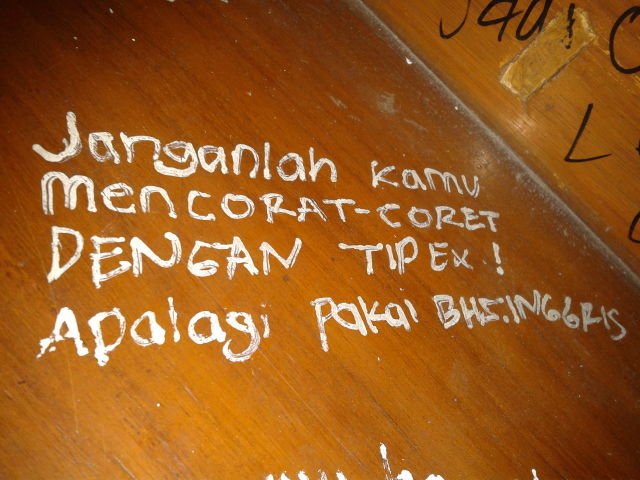 Janganlah kamu
menCORAT-CORET
DENGAN TIPEX!
Apalagi pakai BHS.INGGRIS
Jadi